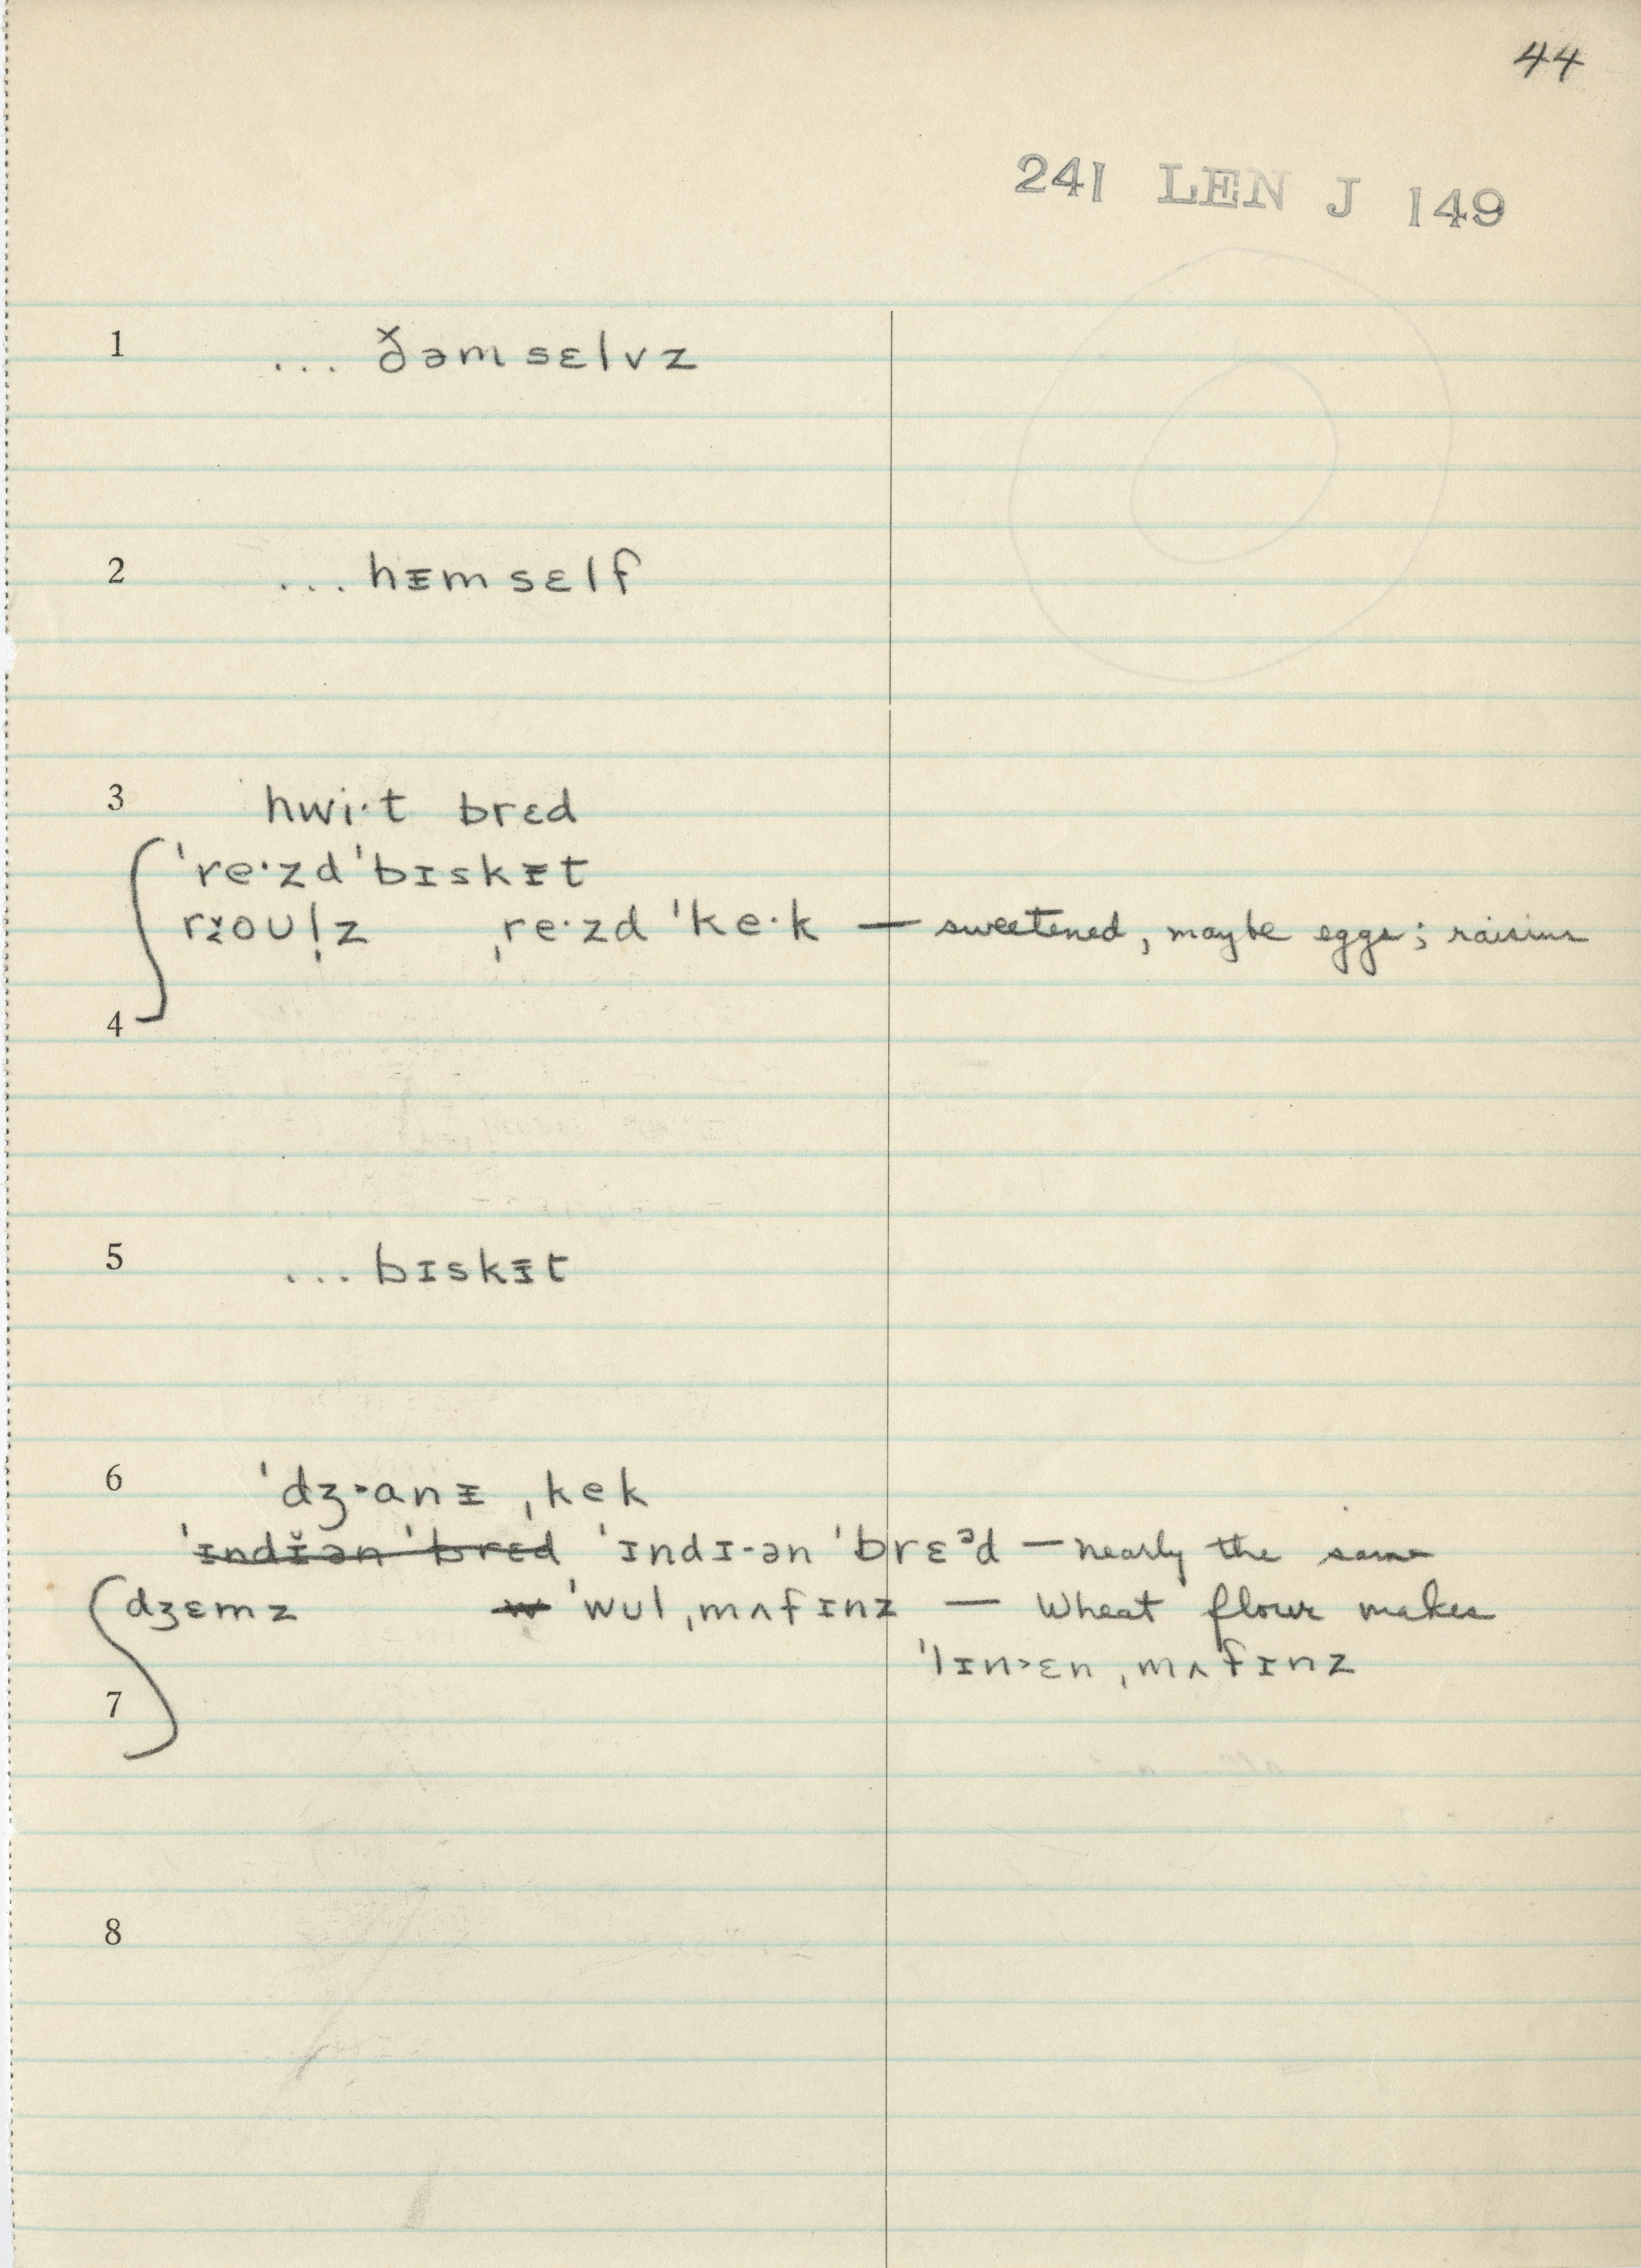 44
241 LEN J 149
1 ... ðəmsɛlvz
2 ... hᵻmsɛlf
3 hwi·t brɛd
ˈre·zd ˈbɪskᵻt
roʊl̩z ˌre·zd ˈke·k — sweetened, maybe eggs; raisins
4
5 ... bɪskᵻt
6 ˈdʒ˃anᵻ ˌkek
ˈɪndɪ̆ən ˈbrɛd ˈɪndɪ-ən ˈbrɛᵊd — nearly the same
dʒɛmz w ˈwʊl ˌmʌfɪnz — Wheat flour makes
ˈlɪn˃ɛn ˌmʌfɪnz
7
8